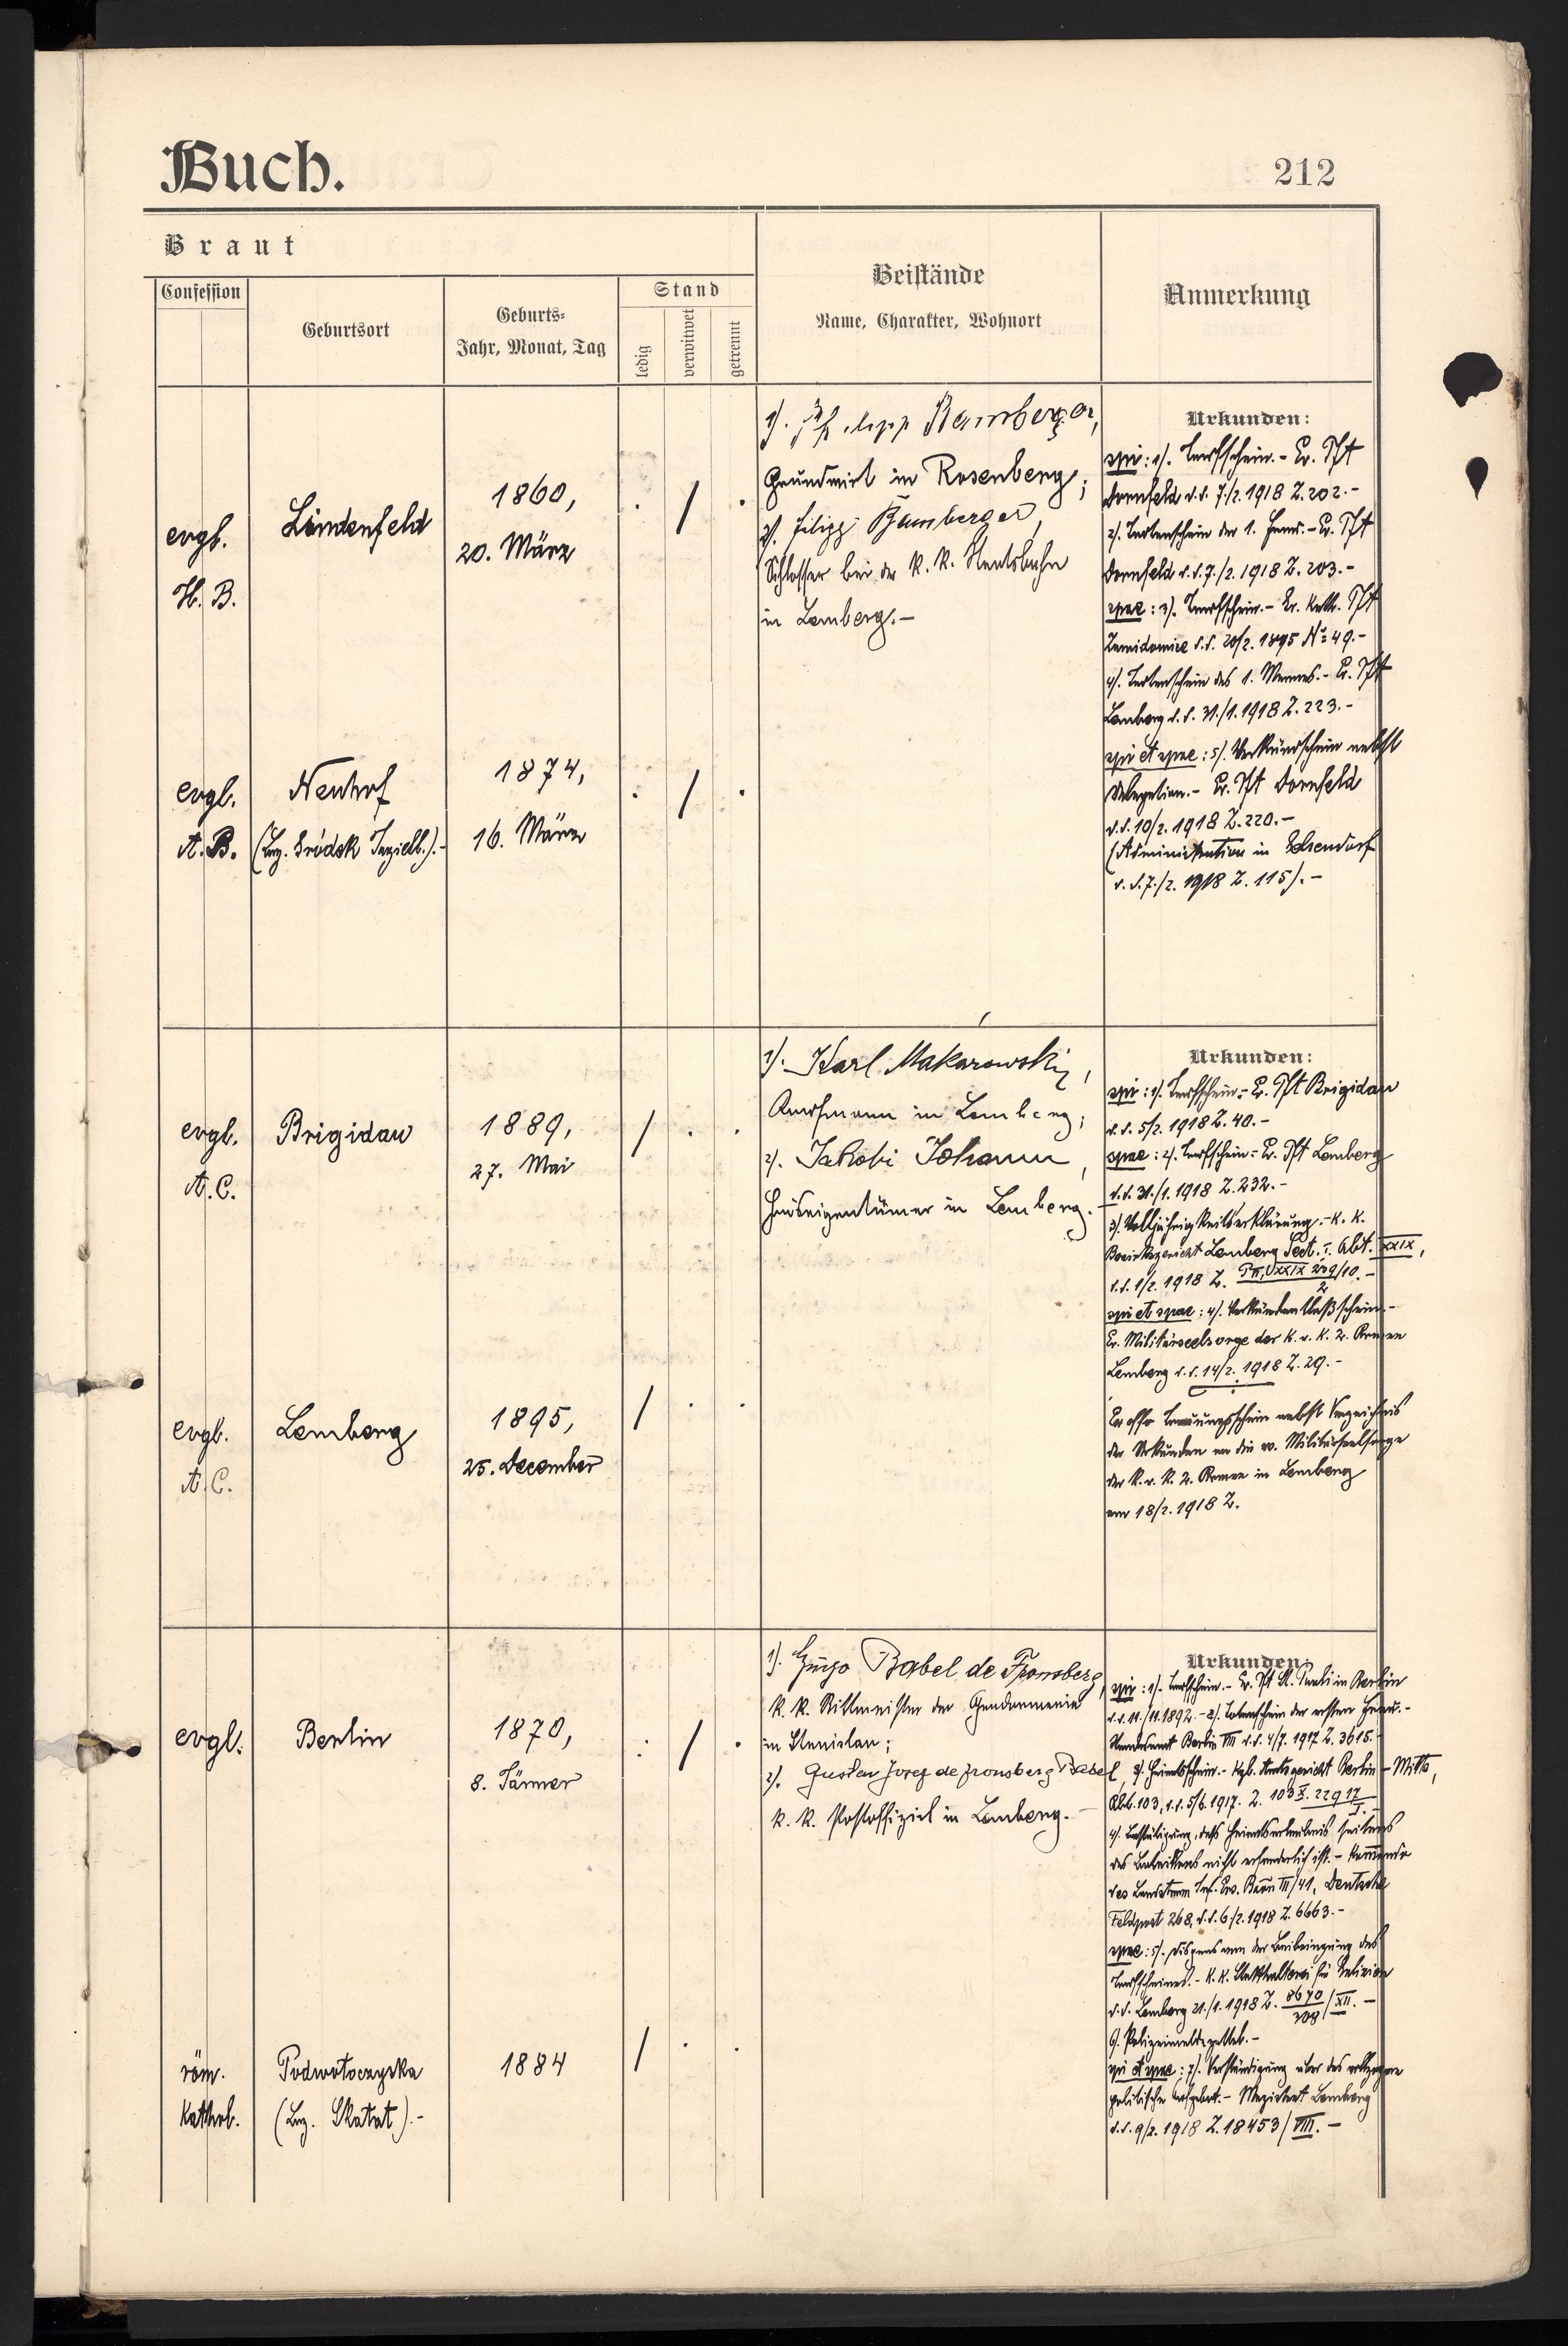 Buch.
212
Braut
Confession
Geburtsort
Geburts-
Jahr, Monat, Tag
Stand
ledig
verwitwet
getrennt
Beistände
Name, Charakter, Wohnort
Anmerkung
evgl.
H. B.
Lindenfeld
1860,
20. März
. / .
1). Bamberger,
Grundwirt in Rosenberg;
2). Filipp Bamberger,
Schlosser bei der k. k. Staatsbahn
in Lemberg.-
Urkunden:
spi: 1). Taufschein.- Ev. Pft
Dornfeld d. d. 7./2. 1918 Z. 202.-
2). Totenschein der 1. Frau.- Ev. Pft
Dornfeld d. d. 7./2. 1918 Z. 203.-
spae: 3). Taufschein.- Kath. Pft
d. d. 20/2. 1895 No 49.-
4). Totenschein des 1. Mannes.- Ev. Pft
Lemberg d. d. 31./1. 1918 Z. 223.-
spi et spae: 5). Verkündschein nebst
Delegation.- Ev. Pft Dornfeld
d. d. 10/2. 1918 Z. 220.-
(Administration in
d. d. 7./2. 1918 Z. 115).-
evgl.
A. B.
Neuhof
(Bez. Gródek Jagiell.).-
1874,
16. März
. / .
evgl.
A. C.
Brigidau
1889,
27. Mai
/ . .
1). Karl Makarowski,
Kaufmann in Lemberg;
2). Jakobi Johann,
Hauseigentümer in Lemberg.-
Urkunden:
spi: 1). Taufschein.- Ev. Pft Brigidau
d. d. 5/2. 1918 Z. 40.-
spae: 2). Taufschein.- Ev. Pft Lemberg
d. d. 31./1. 1918 Z. 232.-
3). Volljährigkeitserklärung.- K. K.
Bezirksgericht Lemberg Sect. I. Abt. XXIX,
d. d. 1/2. 1918 Z.
spi et spae: 4).
Ev. Militärseelsorge der K. u. K. 2. Armee
Lemberg d. d. 14/2. 1918 Z. 29.-
Trauungsschein nebst Verzeichnis
der Urkunden an die ev. Militärseelsorge
der K. u. K. 2. Armee in Lemberg
am 18/2. 1918 Z.
evgl.
A. C.
Lemberg
1895,
25. December
/ . .
evgl.
Berlin
1870,
8. Jänner
. / .
1). Hugo Babel de Fronsberg,
k. k. Rittmeister der Gendarmerie
in Stanislau;
2). Gustav Josef de Fronsberg Babel,
k. k. Postoffizial in Lemberg.-
Urkunden:
spi: 1). Taufschein.- Ev. Pft St. Pauli in Berlin
d. d. 11./11. 1892.- 2). Totenschein der ersten Frau.-
Standesamt Berlin VIII d. d. 4/7. 1917 Z. 3615.-
3). Kgl. Amtsgericht Berlin - Mitte,
Abt. 103, d. d. 5/6. 1917. Z. 103
4). Bestätigung, daß Heiratserlaubnis seitens
des nicht erforderlich ist.- Kommando
des Landsturm Inf. Ers. Baon III/41, Deutsche
Feldpost 268, d. d. 6/2. 1918 Z. 6663.-
spae: 5). Dispens von der Beibringung des
Taufscheines.- K. K. Statthalterei für Galizien
d. d. Lemberg 21./1. 1918 Z. 8670/208/XII.-
6). Polizeimeldezettel.-
spi et spae: 7). Verständigung über das vollzogene
politische Aufgebot.- Magistrat Lemberg
d. d. 9/2. 1918 Z. 18453/VIII.-
röm.
kathol.
Podwołoczyska
(Bez. Skałat).-
1884
/ . .